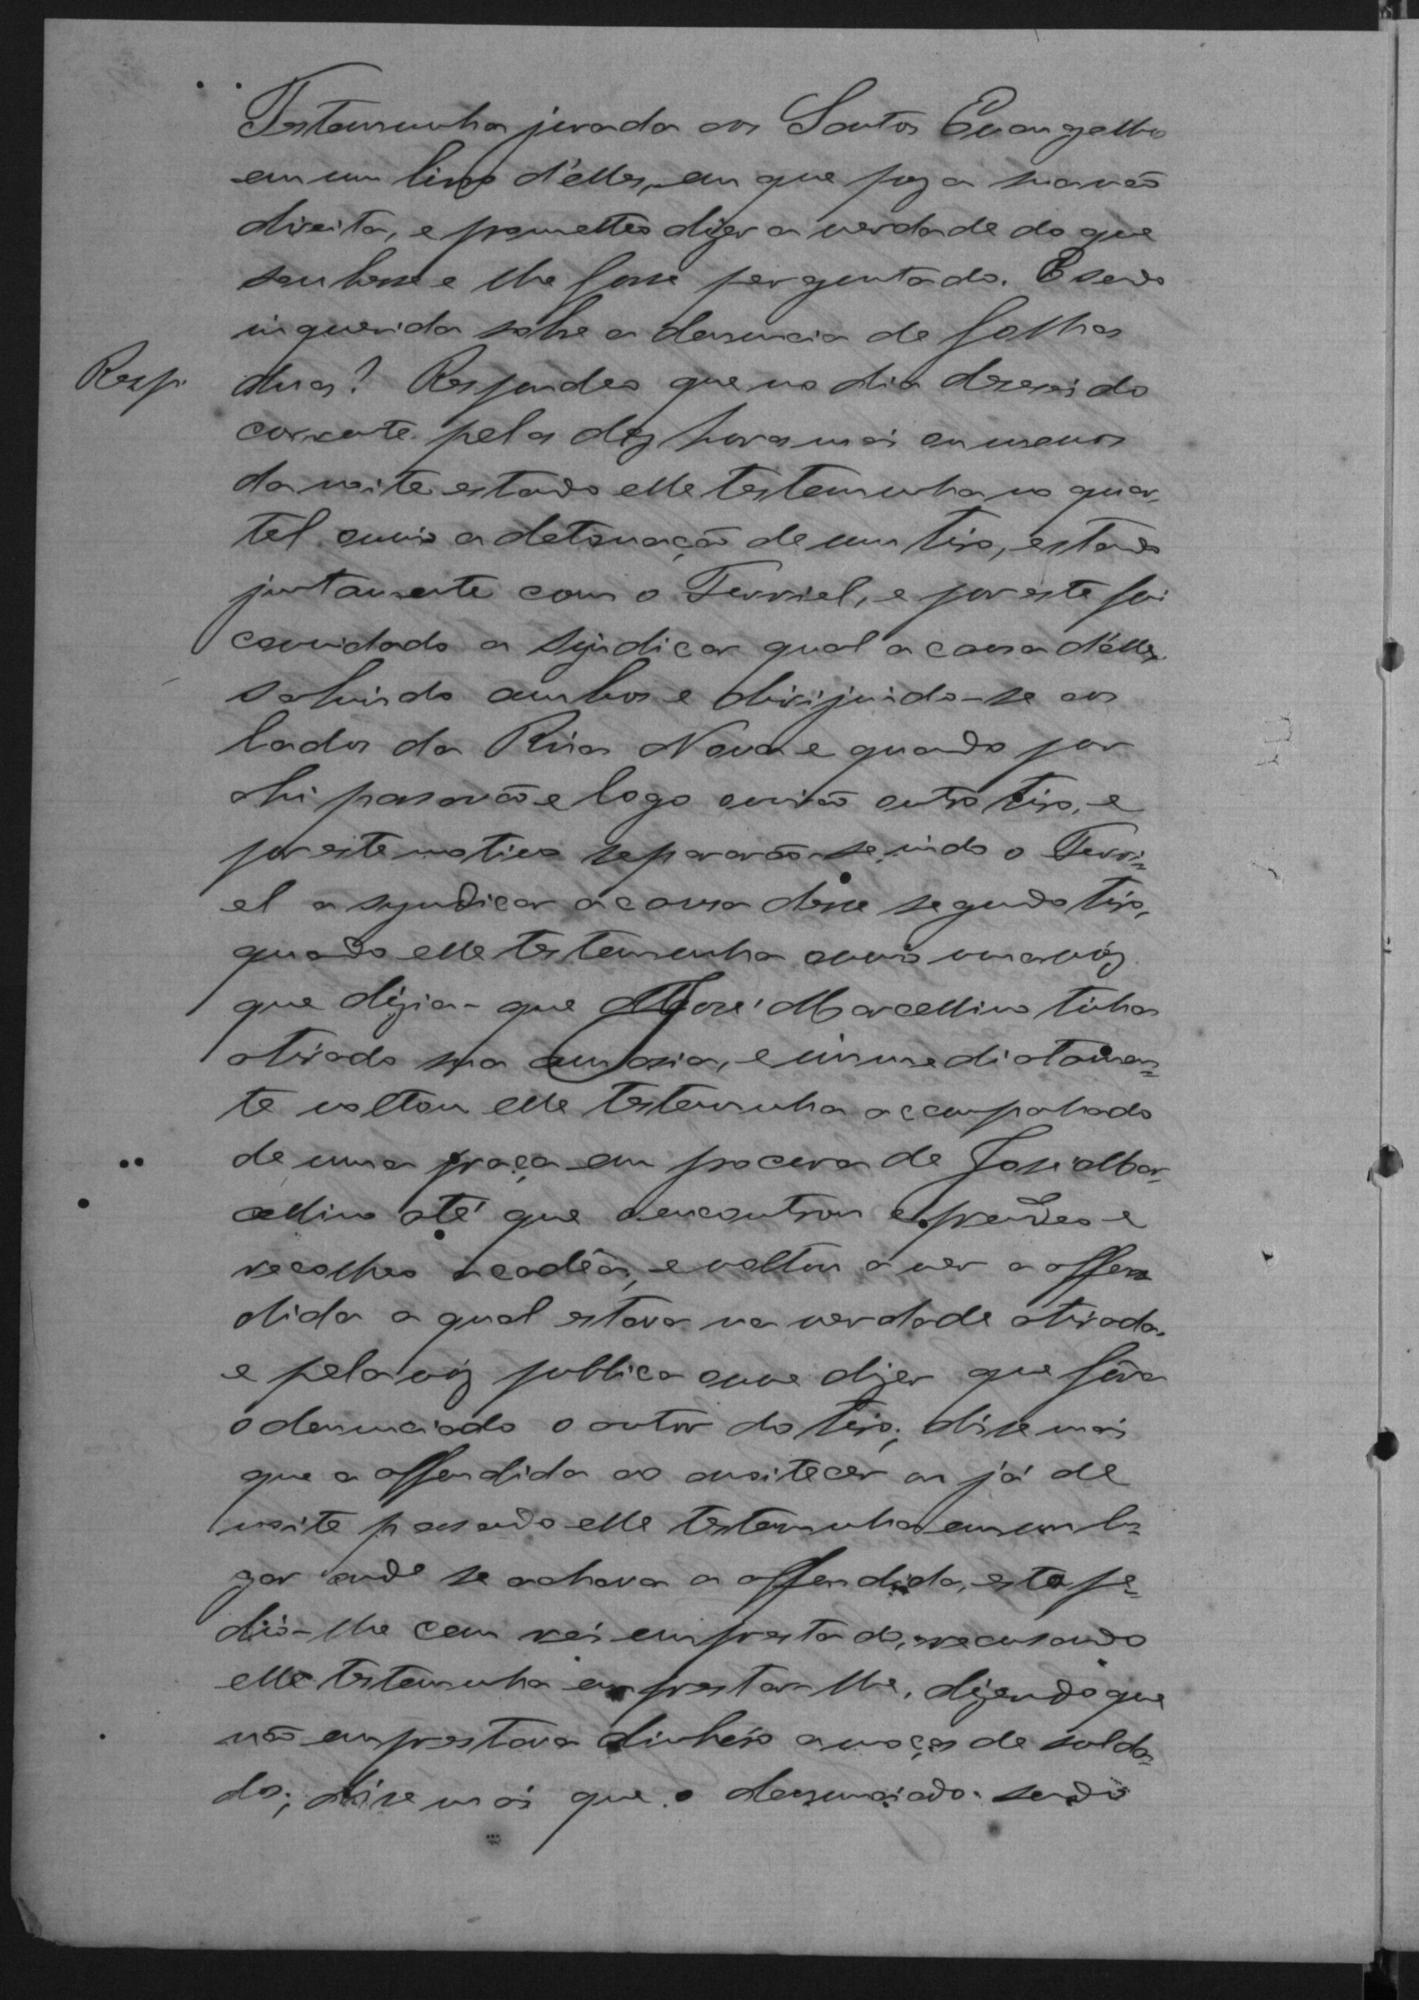 Testemunha jurada aos Santos Evangelhos
em um livro d'elles, em que poz a sua mão
direita, e prometteo dizer a verdade do que
soubesse e lhe fosse perguntado. E sendo
inquerida sobre a denuncia de folhas
Resp. duas? Respondeo que no dia deseseis do
corrente pelas dez horas mais ou menos
da noite estando elle testemunha no quar-
tel ouvio a detonação de um tiro, estando
juntamente com o Furriel, e por este foi
convidado a syndicar qual a causa d'elle,
sahindo ambos e dirijindo-se aos
lados da Rua Nova e quando por
ahi passavão e logo ouvirão outro tiro, e
por este motivo separarão-se indo o Furri-
el a syndicar a causa desse segundo tiro,
quando elle testemunha ouvio uma voz
que dizia - que José Marcellino tinha
atirado sua amasia, e immediatamen-
te voltou elle testemunha acompanhado
de uma praça em procura de José Mar-
cellino até que o encontrou e prendeo e
recolheo a cadêa, e voltou a ver a offen
dida a qual estava na verdade atirada,
e pela voz publica ouve dizer que fôra
o denunciado o autor do tiro; disse mais
que a offendida ao anoitecer ou já de
noite passando elle testemunha em um lu-
gar onde se achava a offendida, esta pe-
dio-lhe cem reis emprestado, recusando
elle testemunha emprestar lhe, dizendo que
não emprestava dinheiro a moças de solda-
do; disse mais que o denunciado sendo